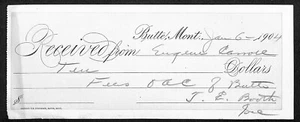 Butte, Mont. Jan 6 - 1904
Received from Eugene Carroll
Ten Dollars
Fees D&C of Butte
T. E. Booth